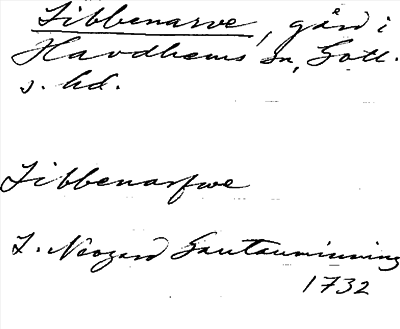 Libbenarve, gård i
Havdhems sn, Gotl.
s. hd.
Libbenarfwe
L. Neogard Gautauminning
1732